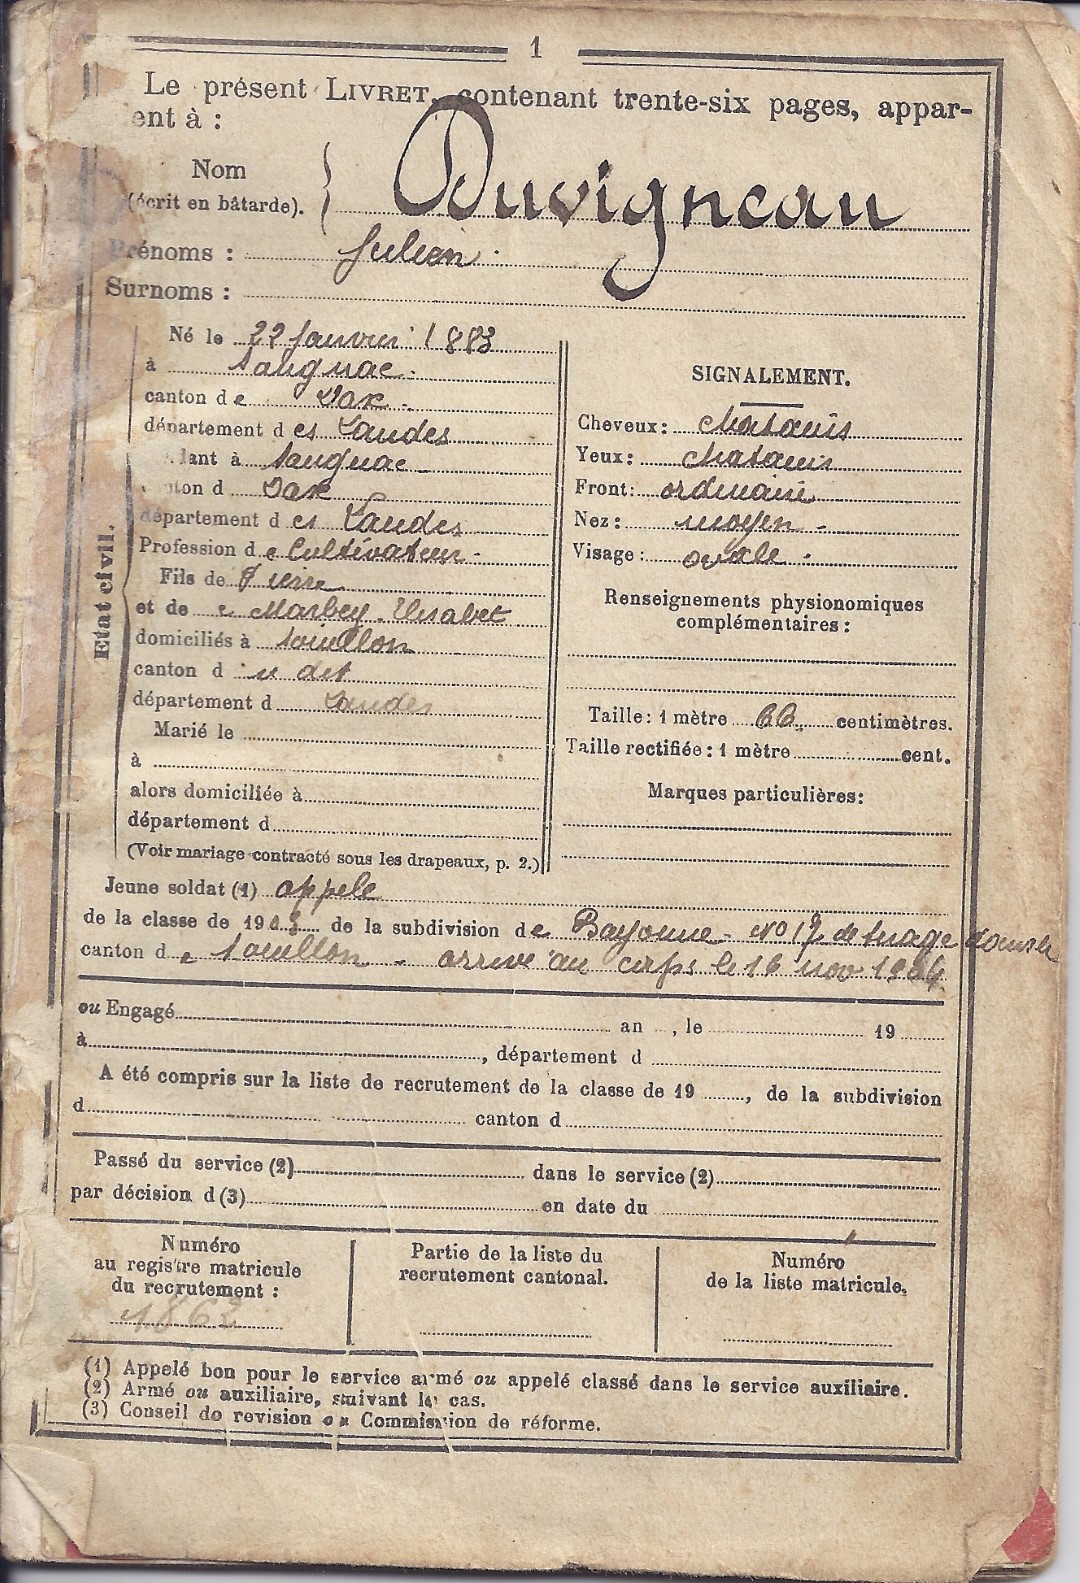 1
Le présent LIVRET, contenant trente-six pages, appar-
ent à :
Nom
(écrit en bâtarde).
Duvigneau
Prénoms : Julien
Surnoms :
Etat civil.
Né le 22 Janvier 1883
à Saugnac
canton de Dax
département des Landes
dant à Saugnac
ton d Dax
département des Landes
Profession de Cultivateur
Fils de Pierre
et de Marbey Elisabet
domiciliés à Pouillon
canton d u dit
département d Landes
Marié le
à
alors domiciliée à
département d
(Voir mariage contracté sous les drapeaux, p. 2.)
SIGNALEMENT.
Cheveux: chatains
Yeux: chatains
Front: ordinaire
Nez: moyen
Visage: ovale
Renseignements physionomiques
complémentaires :
Taille: 1 mètre 66 centimètres.
Taille rectifiée: 1 mètre cent.
Marques particulières:
Jeune soldat (1) appelé
de la classe de 1903 de la subdivision de Bayonne - No 17 de tirage dans le
canton de Pouillon - arrivé au corps le 16 nov 1904
ou Engagé an , le 19
à , département d
A été compris sur la liste de recrutement de la classe de 19 , de la subdivision
d canton d
Passé du service (2) dans le service (2)
par décision d (3) en date du
Numéro
au registre matricule
du recrutement :
1862
Partie de la liste du
recrutement cantonal.
Numéro
de la liste matricule.
(1) Appelé bon pour le service armé ou appelé classé dans le service auxiliaire.
(2) Armé ou auxiliaire, suivant le cas.
(3) Conseil de revision ou Commission de réforme.